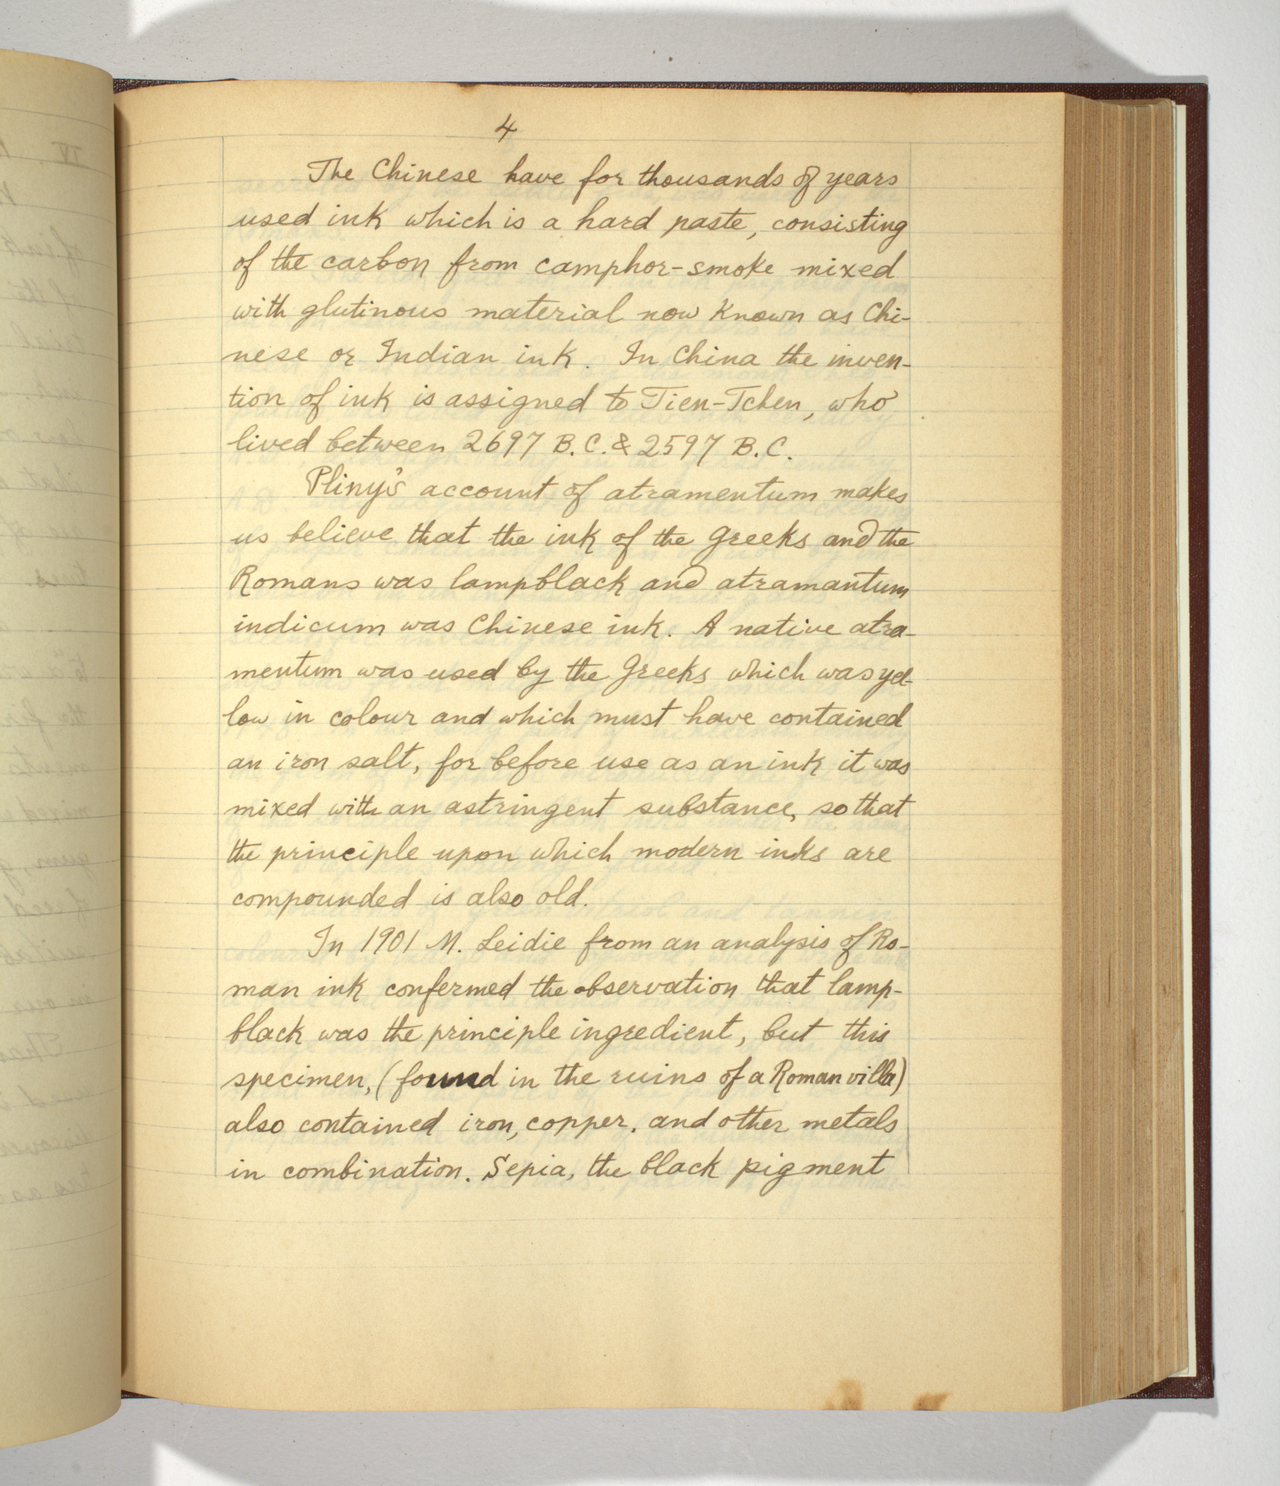 4
The Chinese have for thousands of years
used ink which is a hard paste, consisting
of the carbon from camphor-smoke mixed
with glutinous material now known as Chi-
nese or Indian ink. In China the inven-
tion of ink is assigned to Tien-Tchen, who
lived between 2697 B.C. & 2597 B.C.
Pliny's account of atramentum makes
us believe that the ink of the Greeks and the
Romans was lampblack and atramantum
indicum was Chinese ink. A native atra-
mentum was used by the Greeks which was yel-
low in colour and which must have contained
an iron salt, for before use as an ink it was
mixed with an astringent substance, so that
the principle upon which modern inks are
compounded is also old.
In 1901 M. Leidie from an analysis of Ro-
man ink confermed the observation that lamp-
black was the principle ingredient, but this
specimen, (found in the ruins of a Roman villa)
also contained iron, copper, and other metals
in combination. Sepia, the black pigment